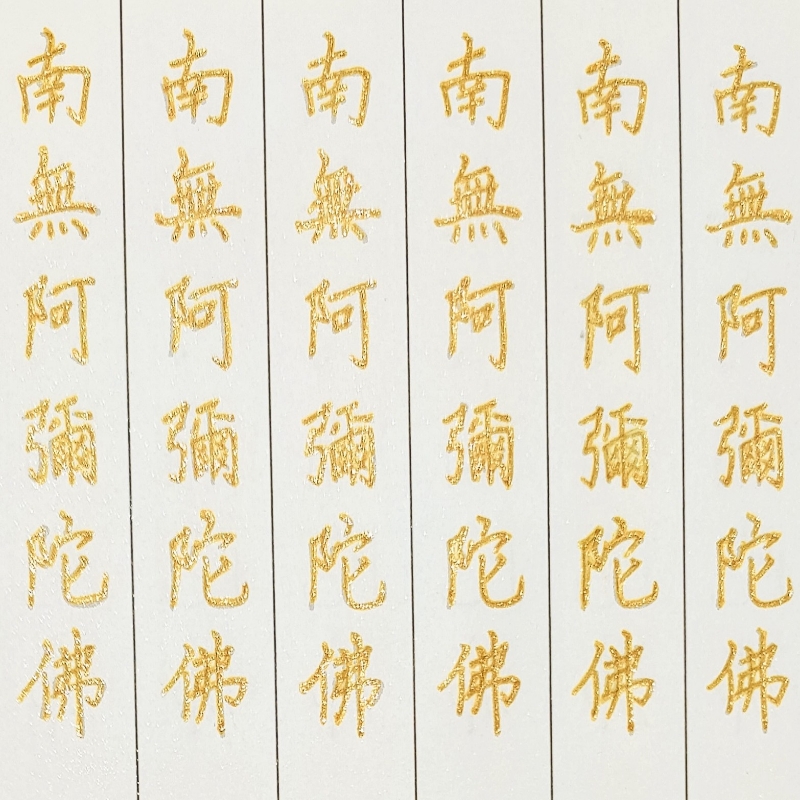 南無阿彌陀佛
南無阿彌陀佛
南無阿彌陀佛
南無阿彌陀佛
南無阿彌陀佛
南無阿彌陀佛